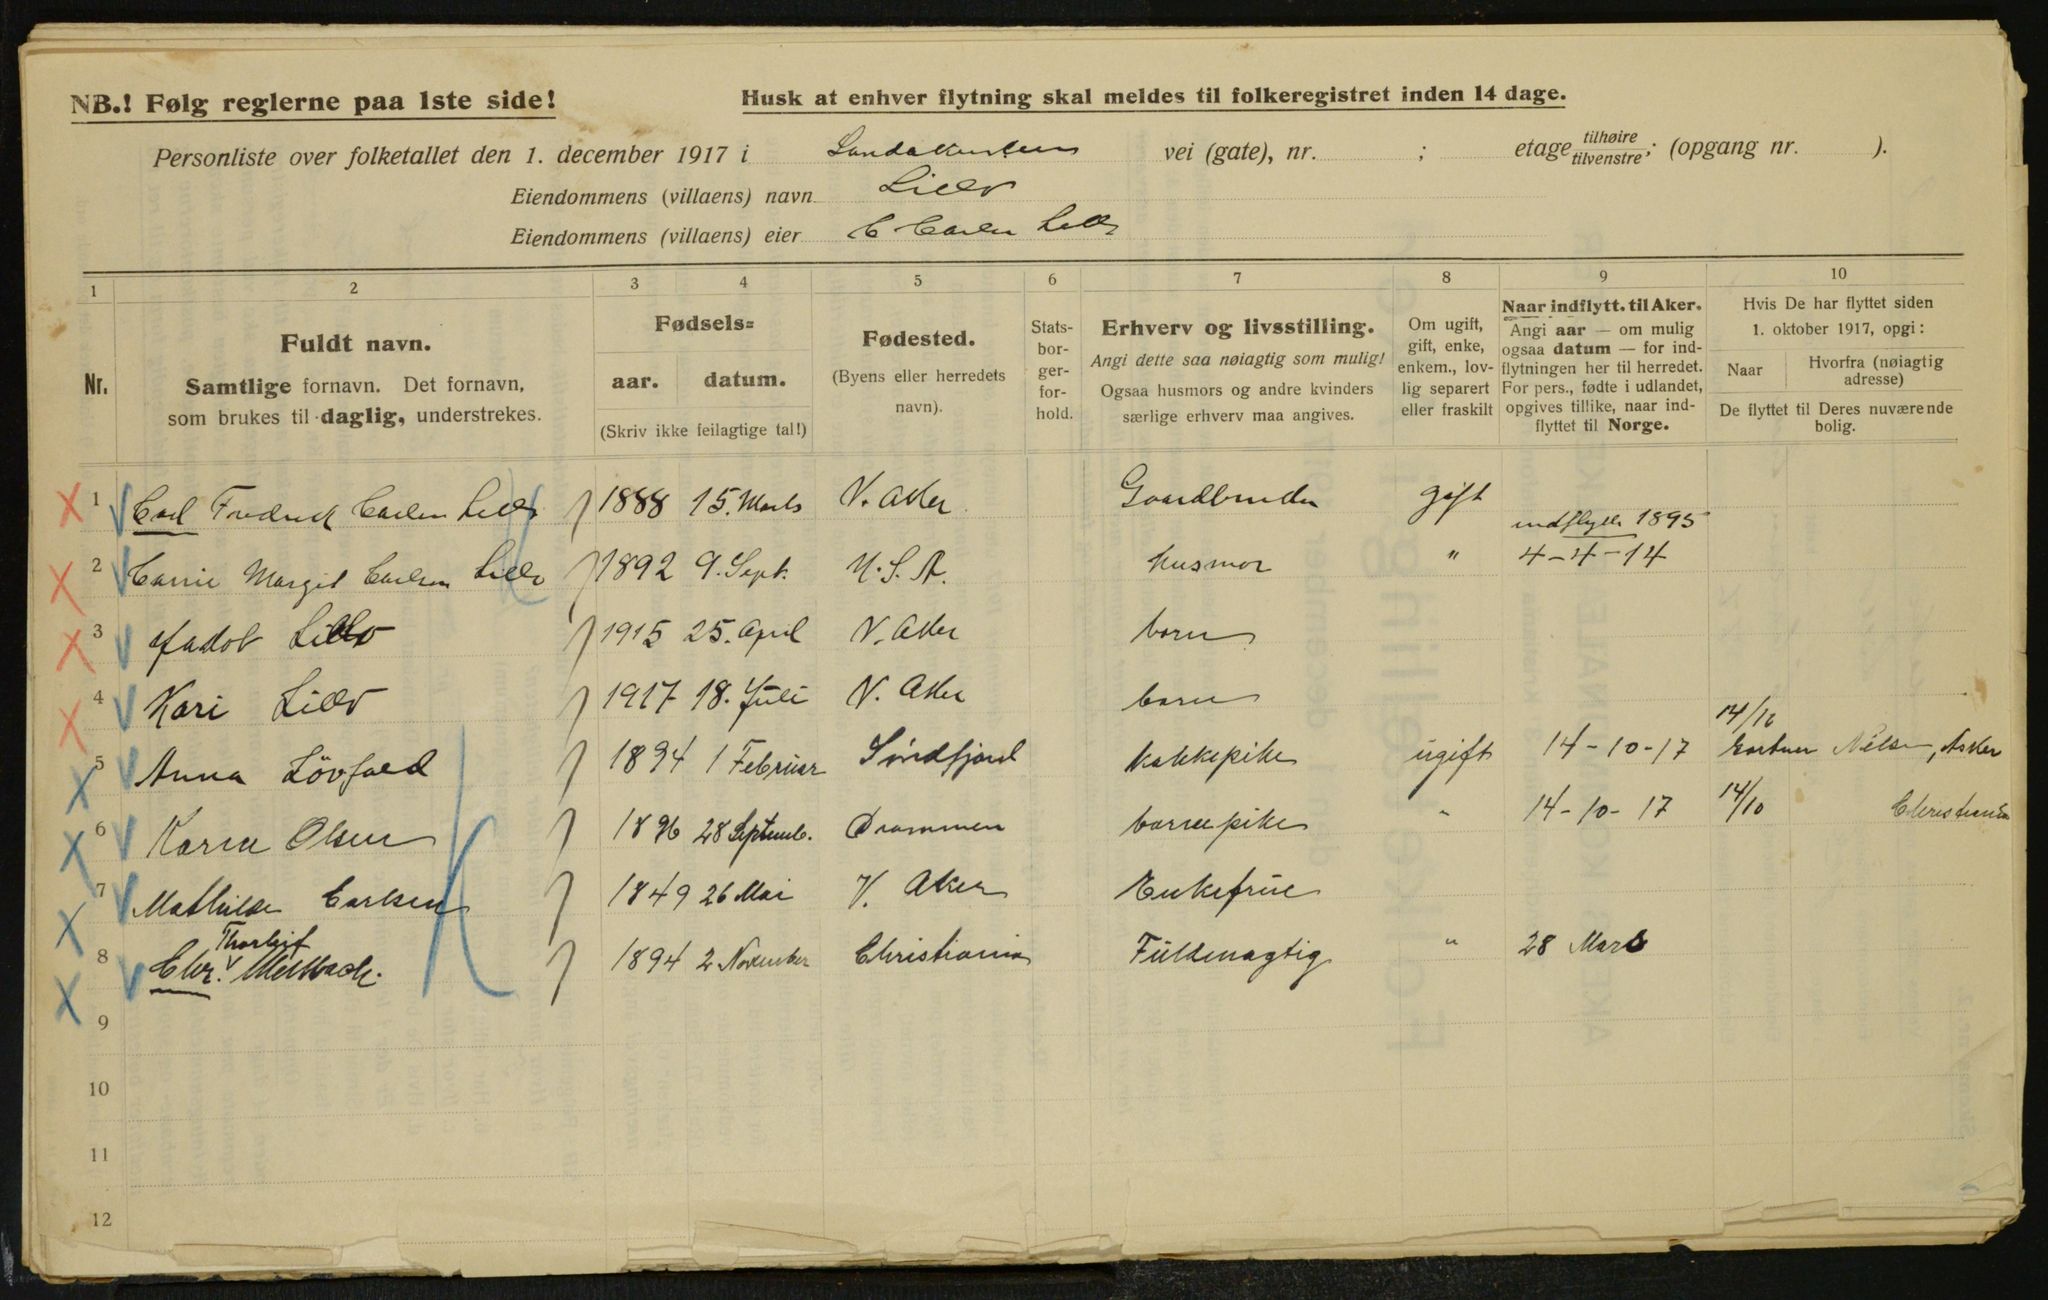 NB.! Følg reglerne paa 1ste side!
Husk at enhver flytning skal meldes til folkeregistret inden 14 dage.
Personliste over folketallet den 1. december 1917 i vei (gate), nr. ; etage tilhøire tilvenstre; (opgang nr. ).
Eiendommens (villaens) navn Lillo
Eiendommens (villaens) eier C Carlsen Lillo
1 2 3 4 5 6 7 8 9 10
Nr.
Fuldt navn.
Samtlige fornavn. Det fornavn,
som brukes til daglig, understrekes.
Fødsels=
aar. datum.
(Skriv ikke feilagtige tal!)
Fødested.
(Byens eller herredets
navn).
Stats-
bor-
ger-
for-
hold.
Erhverv og livsstilling.
Angi dette saa nøiagtig som mulig!
Ogsaa husmors og andre kvinders
særlige erhverv maa angives.
Om ugift,
gift, enke,
enkem., lov-
lig separert
eller fraskilt
Naar indflytt. til Aker.
Angi aar — om mulig
ogsaa datum — for ind-
flytningen her til herredet.
For pers., fødte i utlandet,
opgives tillike, naar ind-
flyttet til Norge.
Hvis De har flyttet siden
1. oktober 1917, opgi:
Naar Hvorfra (nøiagtig
adresse)
De flyttet til Deres nuværende
bolig.
1 Carl Fredrick Carlsen Lillo 1888 15. Marts V. Aker Gaardbruder gift
2 Carrie Margit Carlsen Lillo 1892 9. Sept. U. S. A. husmor " indflytt 1895
4-4-14
3 Jakob Lillo 1915 25. April V. Aker barn
4 Kari Lillo 1917 18. Juli V. Aker barn
5 Anna Lövfald 1894 1 Februar Söndfjord kokkepike ugift 14-10-17 14/10 Gartner Nilsen, Asker
6 Karen Olsen 1896 28 Septemb. Drammen barnepike " 14-10-17 14/10 Christiania
7 Mathilde Carlsen 1849 26 Mai V. Aker Enkefrue
8 Chr. Thorleif 1894 2 November Christiania Fuldmægtig " 28 Mars
9
10
11
12